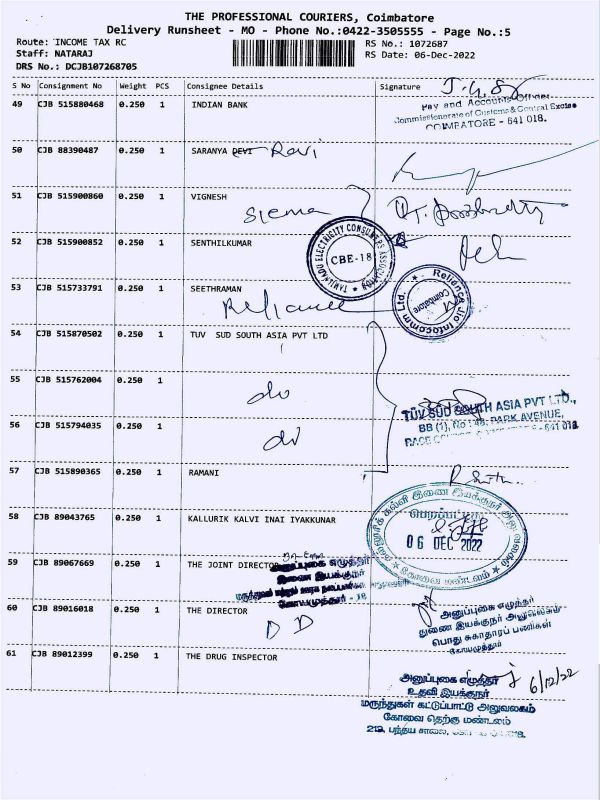 THE PROFESSIONAL COURIERS, Coimbatore
Delivery Runsheet - MO - Phone No.:0422-3505555 - Page No.:5
Route: INCOME TAX RC RS No.: 1072687
Staff: NATARAJ RS Date: 06-Dec-2022
DRS No.: DCJB107268705
S No Consignment No Weight PCS Consignee Details Signature
49 CJB 515880468 0.250 1 INDIAN BANK
Pay and Accounts Officer
Commissionerate of Customs & Central Excise
COIMBATORE - 641 018.
50 CJB 88390487 0.250 1 SARANYA DEVI Ravi
51 CJB 515900860 0.250 1 VIGNESH
TAMILNADU ELECTRICITY CONSUMERS ASSOCIATION
CBE-18
52 CJB 515900852 0.250 1 SENTHILKUMAR
53 CJB 515733791 0.250 1 SEETHRAMAN
Reliance
Reliance Jio Infocomm Ltd.
Coimbatore
54 CJB 515870502 0.250 1 TUV SUD SOUTH ASIA PVT LTD
55 CJB 515762004 0.250 1
do
TÜV SÜD SOUTH ASIA PVT LTD.,
BB (1), No : 48, PARK AVENUE,
RACE - 641 018
56 CJB 515794035 0.250 1
do
57 CJB 515890365 0.250 1 RAMANI
58 CJB 89043765 0.250 1 KALLURIK KALVI INAI IYAKKUNAR
கல்லூரிக் கல்வி இணை இயக்குநர் அலுவலகம்
பெறப்பட்டது
06 DEC 2022
கோவை மண்டலம்
59 CJB 89067669 0.250 1 THE JOINT DIRECTOR
அனுப்புகை எழுத்தர்
இணை இயக்குநர்
மருத்துவம் மற்றும் ஊரக நலப்பணிகள்
கோயமுத்தூர் - 18
60 CJB 89016018 0.250 1 THE DIRECTOR
D D
அனுப்புகை எழுத்தர்
துணை இயக்குநர் அலுவலகம்
பொது சுகாதாரப் பணிகள்
கோயமுத்தூர்
61 CJB 89012399 0.250 1 THE DRUG INSPECTOR
6/12/22
அனுப்புகை எழுத்தர்
உதவி இயக்குநர்
மருந்துகள் கட்டுப்பாட்டு அலுவலகம்
கோவை தெற்கு மண்டலம்
219, பந்தய சாலை,